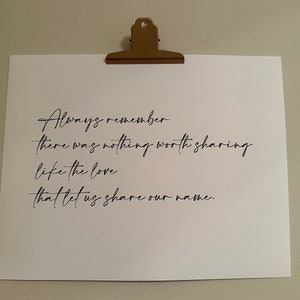 Always remember
there was nothing worth sharing
like the love
that let us share our name.